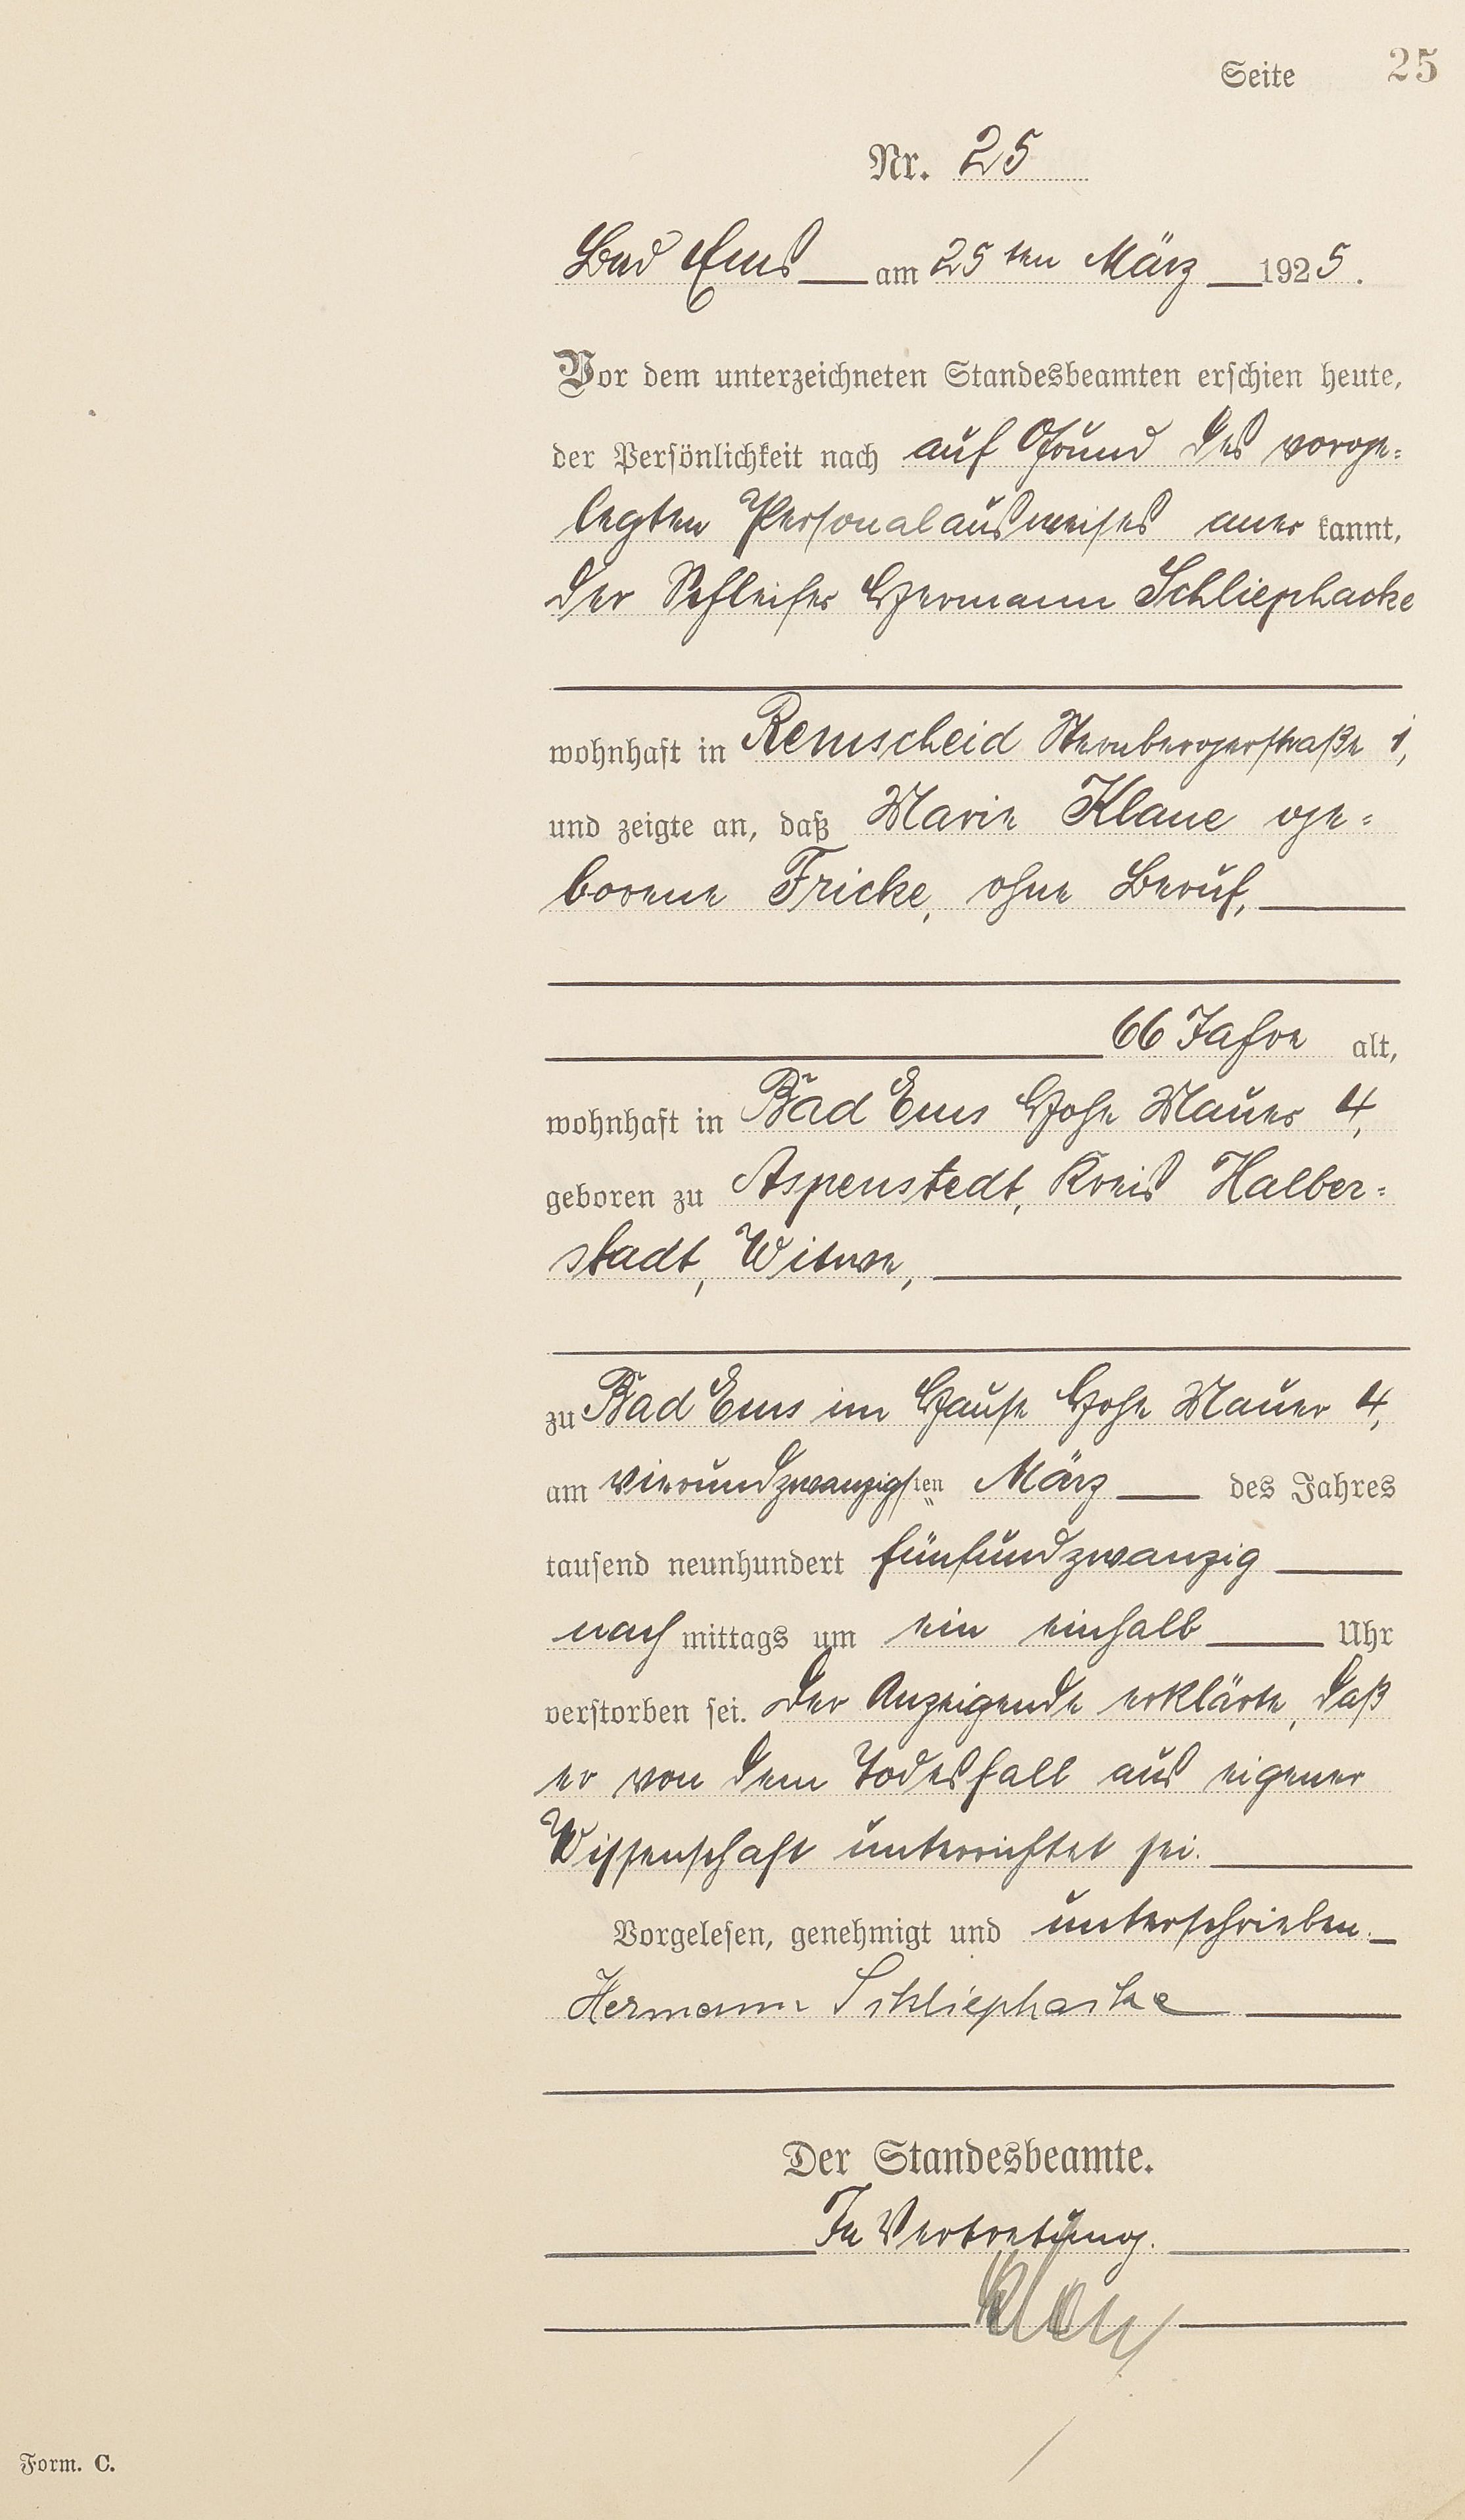 Seite 25
Nr. 25
Bad Ems am 25ten März 1925.
Vor dem unterzeichneten Standesbeamten erschien heute,
der Persönlichkeit nach auf Grund des vorge=
legten Personalausweises anerkannt,
der Schleifer Hermann Schliephacke
wohnhaft in Remscheid Sternbergerstraße 1,
und zeigte an, daß Marie Klaue ge=
borene Fricke, ohne Beruf,
66 Jahre alt,
wohnhaft in Bad Ems Hohe Mauer 4,
geboren zu Aspenstedt, Kreis Halber=
stadt, Witwe,
zu Bad Ems im Hause Hohe Mauer 4,
am vierundzwanzigsten März des Jahres
tausend neunhundert fünfundzwanzig
nachmittags um ein einhalb Uhr
verstorben sei. Der Anzeigende erklärte, daß
er von dem Todesfall aus eigener
Wissenschaft unterrichtet sei.
Vorgelesen, genehmigt und unterschrieben.
Hermann Schliephacke
Der Standesbeamte.
In Vertretung.
Form. C.